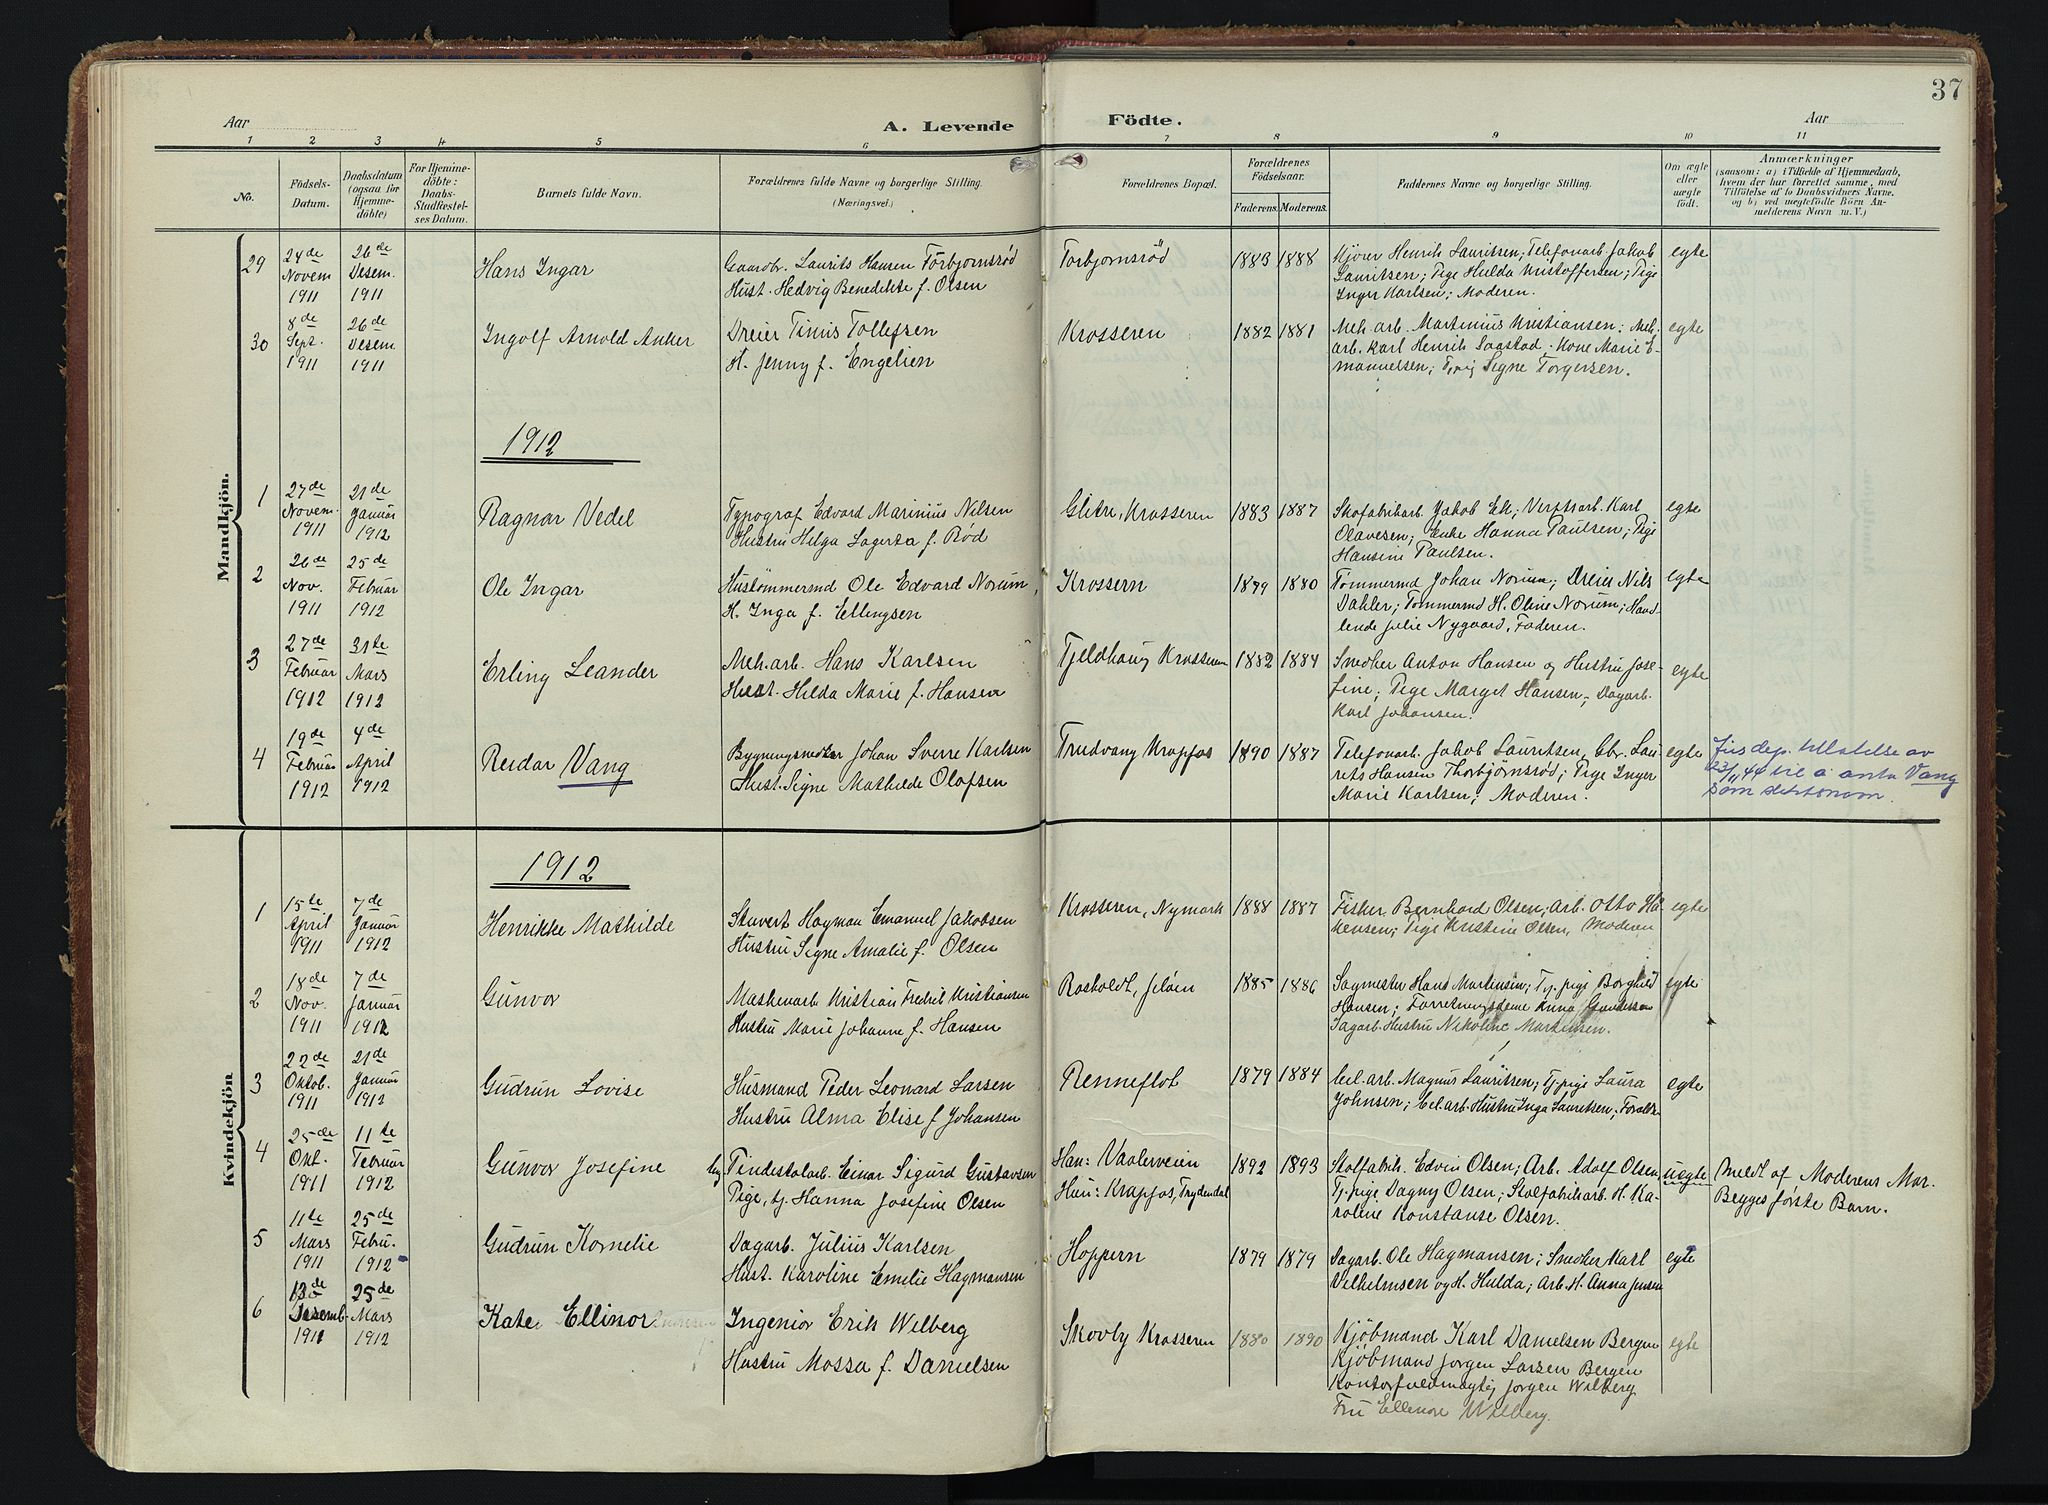 37
Aar
A. Levende
Födte.
Aar
1 2 3 4 5 6 7 8 9 10 11
No.
Födsels-
Datum.
Daabsdatum
(ogsaa for
Hjemme-
döbte)
For Hjemme-
döbte:
Daabs-
Stadfæstel-
ses Datum.
Barnets fulde Navn.
Forældrenes fulde Navne og borgerlige Stilling.
(Næringsvei.)
Forældrenes Bopæl.
Forældrenes
Födselsaar.
Faderens. Moderens.
Faddernes Navne og borgerlige Stilling.
Om ægte
eller
uægte
födt.
Anmærkninger
(saasom: a) i Tilfælde af Hjemmedaab,
hvem der har forrettet samme, med
Tilföielse af to Daabsvidners Navne.
og b) ved uægtefödte Börn An-
melderens Navn m. V.)
Mandkjön.
29
24de
Novem
1911
26de
Desem.
1911
Hans Ingar
Gaardbr. Laurits Hansen Torbjørnsrød
Hust. Hedvig Benedikte f. Olsen
Torbjørnsrød
1883 1888
Kjører Henrik Lauritsen; Telefonarb. Jakob
Lauritsen; Pige Hulda Kristoffersen; Pige
Inger Karlsen; Moderen.
egte
30
8de
Sept.
1911
26de
Desem
1911
Ingolf Arnold Anker
Dreier Tinius Tollefsen
H. Jenny f. Engelien
Krosseren
1882 1881
Mek. arb. Martinius Kristiansen; Mek.
arb. Karl Henrik Saastad. Kone Marie E-
manuelsen; Signe Torgersen.
egte
1912
1
27de
Novem.
1911
21de
Januar
1912
Ragnar Vedel
Typograf Edvard Marinius Nilsen
Hustru Helga Lagerta f. Rød
Glitre, Krosseren
1883 1887
Skofabrikarb. Jakob Ek; Verftarb. Karl
Olavesen; Enke Hanna Paulsen; Pige
Hansine Paulsen.
egte
2
26de
Nov.
1911
25de
Februar
1912
Ole Ingar
Hustømmermd Ole Edvard Norum,
H. Inga f. Ellingsen
Krossern
1879 1880
Tømmermd Johan Norum; Dreier Nils
Dahler; Tømmermd H. Oline Norum; Hand-
lende Julie Nygaard, Faderen.
egte
3
27de
Februar
1912
31te
Mars
1912
Erling Leander
Mek. arb. Hans Karlsen
Hust. Hilda Marie f. Hansen
Fjeldhaug Krosseren
1882 1884
Snedker Anton Hansen og Hustru Jose-
fine; Pige Margit Hansen; Dagarb.
Karl Johansen.
egte
4
19de
Februar
1912
4de
April
1912
Reidar Vang
Bygningsnedker Johan Sverre Karlsen
Hust. Signe Mathilde Olafsen
Trudvang Krapfos
1890 1887
Telefonarb. Jakob Lauritsen, Gbr. Lau-
rits Hansen Thorbjørnsrød; Pige Inger
Marie Karlsen; Moderen.
egte
Jusdep. tillatelse av
23/11 44 til å anta Vang
som slektsnavn.
Kvindekjön
1912
1
15te
April
1911
7de
Januar
1912
Henrikke Mathilde
Stuvert Hagman Emanuel Jakobsen
Hustru Signe Amalie f. Olsen
Krosseren, Nymark
1888 1887
Fisker Bernhard Olsen; Arb. Otto Ha-
kensen; Pige Kristine Olsen, Moderen
egte
2
18de
Nov.
1911
7de
Januar
1912
Gunvor
Maskenarb. Kristian Fredrik Kristiansen
Hustru Marie Johanne f. Hansen
Rosholdt, Jeløen
1885 1886
Sagmester Hans Martinsen; Tj. pige Borghild
Hansen; Forretningsdame Anna Gundersen
Sagarb. Hustru Nikoline Martinsen.
egte
3
22de
Oktob.
1911
21de
Januar
1912
Gudrun Lovise
Husmand Peder Leonard Larsen
Hustru Alma Elise f Johansen
Renneflot
1879 1884
Cel. arb. Magnus Lauritsen; Tj. pige Laura
Johnsen; Cel. arb. Hustru Inga Lauritsen;
egte
4
25de
Okt.
1911
11te
Februar
1912
Gunvor Josefine
Ug Tindestolarb. Einar Sigurd Gustavsen
Pige, tj. Hanna Josefine Olsen
Han: Vaalerveien
Hun: Krapfos, Trydendal
1892 1893
Stolfabrik. Edvin Olsen; Arb. Adolf Olsen,
Tj. pige Dagny Olsen; Stolfabrikarb. H. Ka-
roline Konstanse Olsen.
uegte
Meldt af Moderens Mor.
Begges første Barn.
5
11te
Mars
1911
25de
Febru.
1912
Gudrun Kornelie
Dagarb. Julius Karlsen
Hust. Karoline Emilie Hagmansen
Hoppern
1879 1879
Dagarb. Ole Hagmansen; Snedker Karl
Vilhelmsen og H. Hulda; Arb. H. Anna Jensen
egte
6
13de
Desemb.
1911
25de
Mars
1912
Kate Ellinor
Ingeniør Erik Wilberg
Hustru Mossa f. Danielsen
Skovby Krosseren
1880 1890
Kjøbmand Karl Danielsen Bergen
Kjøbmand Jørgen Larsen Bergen
Kontorfuldmægtig Jørgen Wilberg
Fru Ellinor Wilberg.
egte